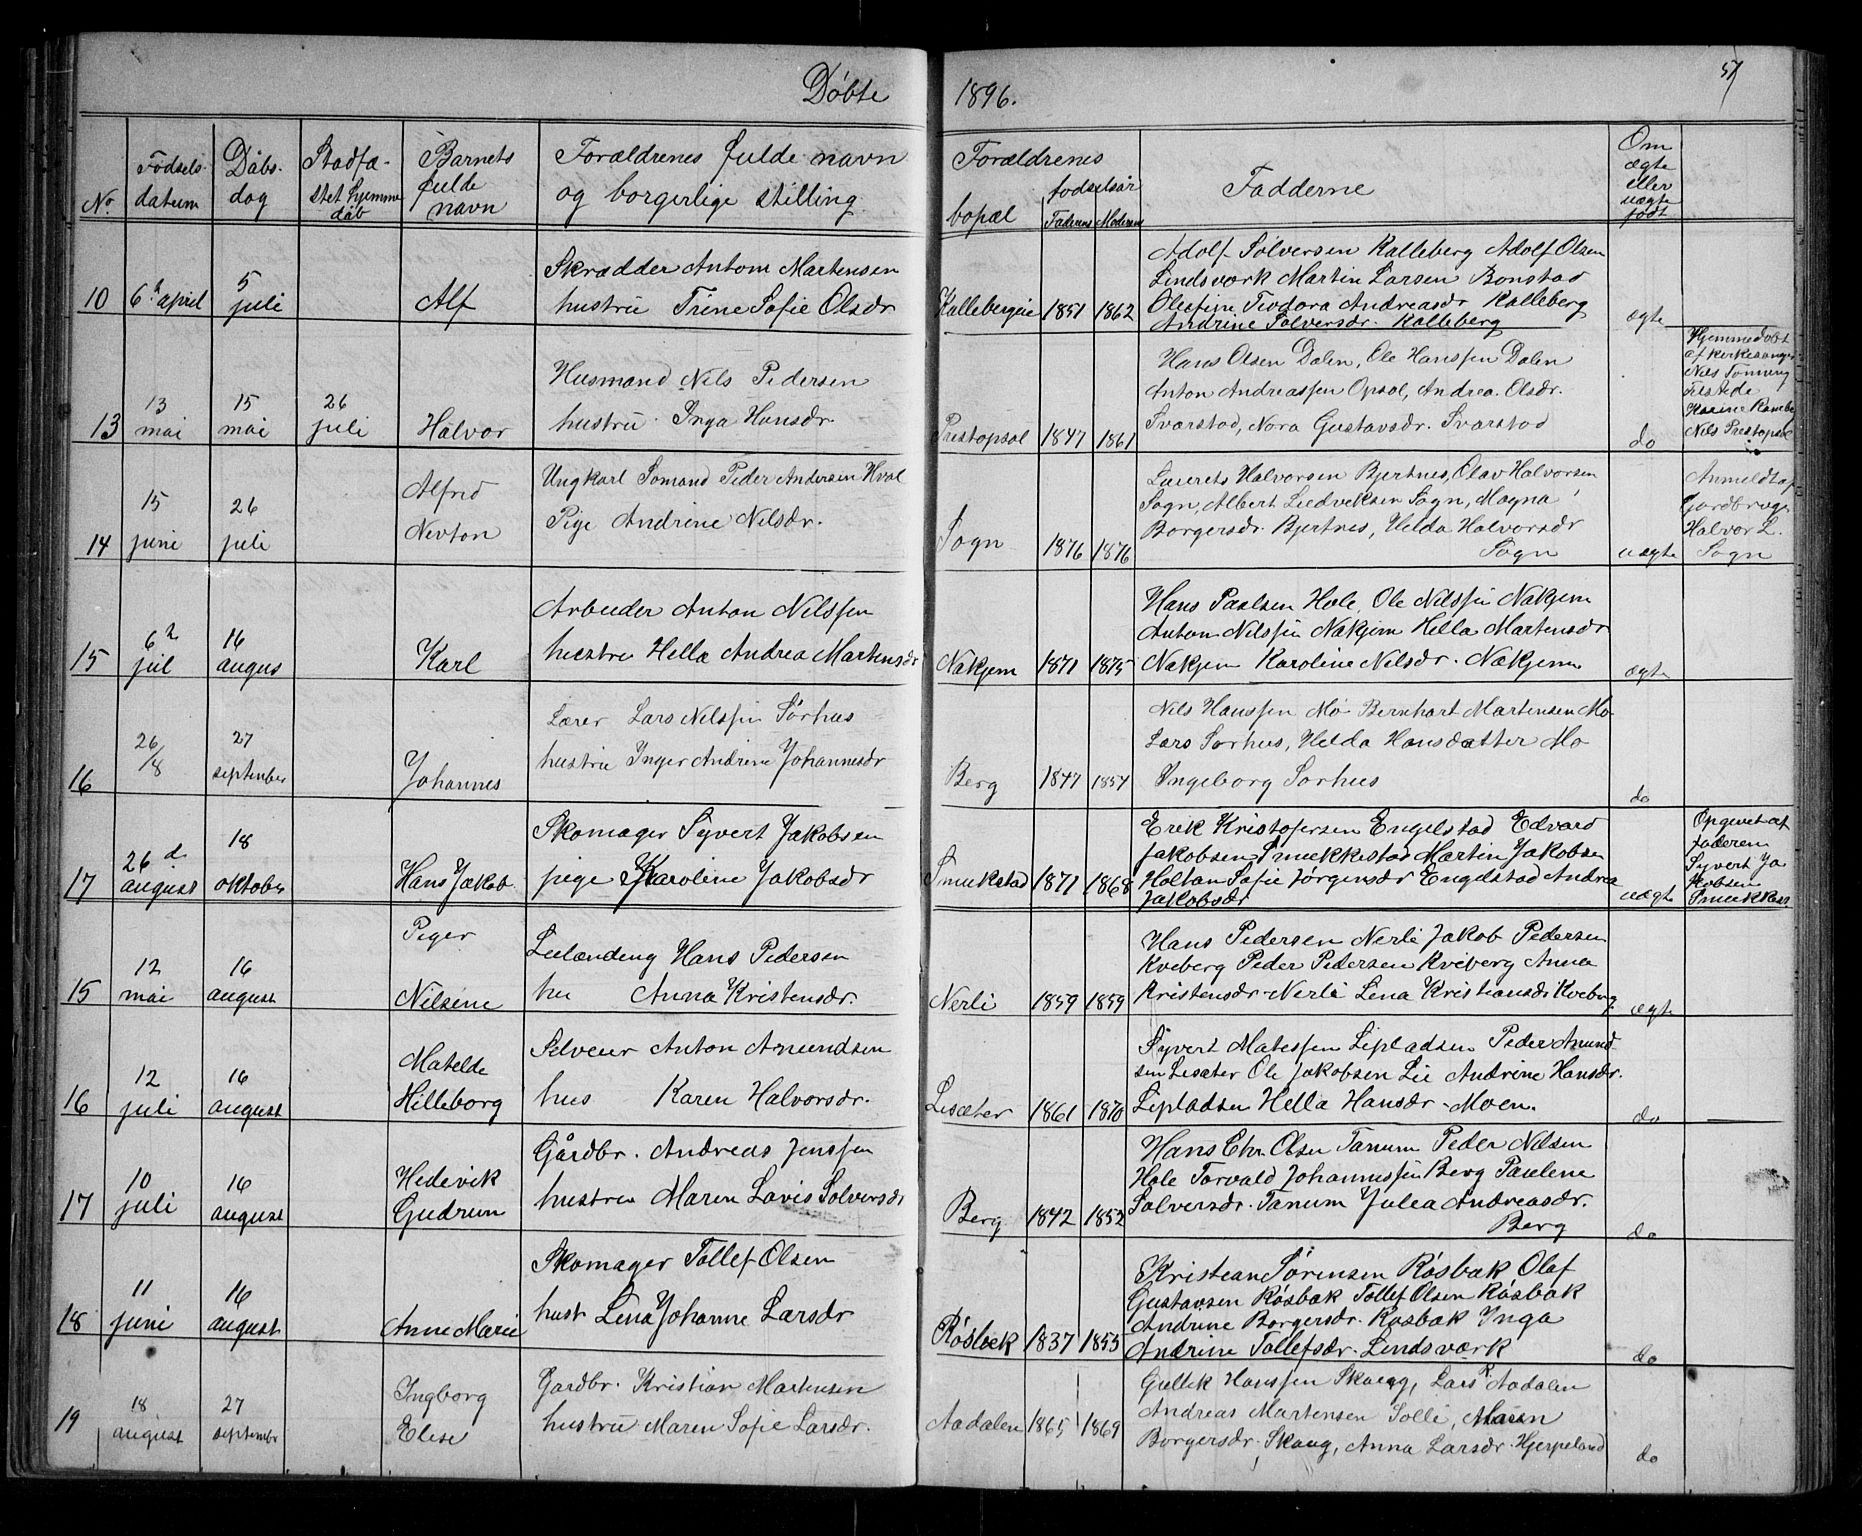 Døbte 1896.
57
No.
Fødsels-
datum
Døbs-
dag
Stadfæ-
stet hjemme
døb
Barnets
fulde
navn
Forældrenes fulde navn
og borgerlige stilling
Forældrenes
bopæl
fødselsår
Faderens Moderens
Fadderne
Om
ægte
eller
uægte
født
10
6te april
5
juli
Alf
Skrædder Anton Martensen
hustru Trine Sofie Olsdr
Kallebergeie
1851
1862
Adolf Sølversen Kalleberg Adolf Olsen
Lindsværk Martin Larsen Bonstad
Olefine Teodora Andreasdr Kalleberg
Andrine Sølversdr. Kalleberg
ægte
13
13
mai
15
mai
26
juli
Halvor
Husmand Nils Pedersen
hustru Inga Hansdr.
Prestopsal
1847
1861
Hans Olsen Dalen, Ole Hanssen Dalen
Anton Andreassen Opsal, Andrea Olsdr.
Svarstad, Nora Gustavsdr. Svarstad
do
Hjemmedøbt
af kirkesanger
Nils Tonning
Tilstede
Nils Prestopsal
14
15
juni
26
juli
Alfred
Nevton
Ungkarl Sømand Peder Andersen Hval
Pige Andrine Nilsdr.
Sogn
1876
1876
Laurets Halvorsen Bjertnes, Olav Halvorsen
Sogn, Albert Ludveksen Sogn, Magna
Borgersdr. Bjertnes, Helda Halvorsdr
Sogn
uægte
Anmeldt af
Gardbruger
Halvor L.
Sogn
15
6te
jul
16
augus
Karl
Arbeider Anton Nilssen
hustru Hella Andrea Martensdr
Nakjem
1871
1875
Hans Paulsen Hole, Ole Nilssen Nakjem
Anton Nilssen Nakjem Hella Martensdr
Nakjem Karoline Nilsdr. Nakjem
ægte
16
26/8
27
september
Johannes
Lærer Lars Nilssen Sørhus
hustru Inger Andrine Johannesdr
Berg
1847
1854
Nils Hanssen Mo Bernhart Martensen Mo
Lars Sørhus, Helda Hansdatter Mo
Ingeborg Sørhus
do
17
26 d.
august
18
oktober
Hans Jakob
Skomager Syvert Jakobsen
pige Karoline Jakobsdr
Smukstad
1871
1868
Erek Kristofersen Engelstad Edvard
Jakobsen Smukkestad Martin Jakobsen
Holtan Sofie Jørgensdr Engelstad Andrea
Jakobsdr
uægte
Opgivet af
faderen
Syvert Ja
kobsen
15
12
mai
16
august
Piger
Nilsine
Leilænding Hans Pedersen
hu Anna Kristensdr.
Nerli
1859
1859
Hans Pedersen Nerli Jakob Pedersen
Kveberg Peder Pedersen Kveberg Anna
Kristensdr. Nerli Lena Kristiansdr Kveberg
ægte
16
12
juli
16
august
Matelde
Hilleborg
Selveier Anton Amundsen
hus Karen Halvorsdr.
Lisæter
1861
1870
Syvert Matessen Lipladsen Peder Amund-
sen Lisæter Ole Jakobsen Lie Andrine Hansdr.
Lipladsen Hella Hansdr. Moen.
do
17
10
juli
16
august
Hedevik
Gudrun
Gårdbr. Andreas Jenssen
hustru Maren Lovis Sølversdr
Berg
1842
1852
Hans Chr. Olsen Tanum Peder Nilsen
Hole Torvald Johannessen Berg Paulene
Sølversdr. Tanum Julea Andreasdr.
Berg
do
18
11
juni
16
august
Anne Marie
Skomager Tollef Olsen
hust Lena Johanne Larsdr
Røsbæk
1837
1855
Kristean Sørensen Røsbæk Olaf
Gustavsen Røsbæk Tollef Olsen Røsbæk
Andrine Borgersdr. Røsbæk Inga
Andrine Tollefsdr. Lindsværk
do
19
18
august
27
septembr
Ingborg
Elise
Gardbr. Kristian Martensen
hustru Maren Sofie Larsdr.
Aadalen
1865
1869
Gullik Hanssen Skaug, Lars R. Aadalen
Andreas Martensen Solli, Maren
Borgersdr. Skaug, Anna Larsdr. Hjerpeland
do